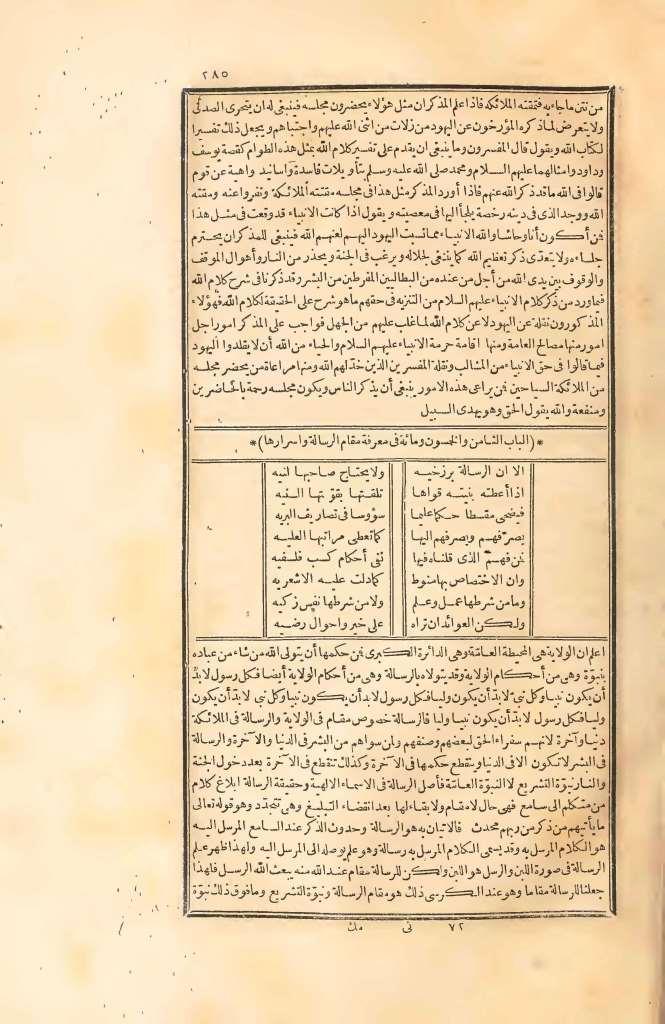 ٢٨٥
من نتن ما جاء به فتمقته الملائكة فاذا علم المذكر ان مثل هؤلاء يحضرون مجلسه فينبغى له ان يتحرى الصدق
ولا يتعرض لما ذكره المؤرخون عن اليهود من زلات من اثنى الله عليهم واجتباهم ويجعل ذلك تفسيرا
لكتاب الله ويقول قال المفسرون وما ينبغى ان يقدم على تفسير كلام الله بمثل هذه الطوام كقصة يوسف
وداود وامثالهما عليهم السلام ومحمد صلى الله عليه وسلم بتأويلات فاسدة وأسانيد واهية عن قوم
قالوا فى الله ما قد ذكر الله عنهم فاذا أورد المذكر مثل هذا فى مجلسه مقتته الملائكة ونفروا عنه ومقته
الله ووجد الذى فى دينه رخصة يلجأ اليها فى معصيته ويقول اذا كانت الانبياء قد وقعت فى مثل هذا
فمن أكون أنا وحاشا والله الانبياء مما نسبت اليهود اليهم لعنهم الله فينبغى للمذكر ان يحترم
جلساءه ولا يتعدى ذكر تعظيم الله كما ينبغى لجلاله ويرغب فى الجنة ويحذر من النار وأهوال الموقف
والوقوف بين يدى الله من أجل من عنده من البطالين المفرطين من البشر وقد ذكرنا فى شرح كلام الله
فيما ورد من ذكر كلام الانبياء عليهم السلام من التنزيه فى حقهم ما هو شرح على الحقيقة لكلام الله فهؤلاء
المذكورون نقلة عن اليهود لا عن كلام الله لما غلب عليهم من الجهل فواجب على المذكر امور اجل
امور منها مصالح العامة ومنها اقامة حرمة الانبياء عليهم السلام والحياء من الله أن لا يقلدوا اليهود
فيما قالوا فى حق الانبياء من المثالب ونقلة المفسرين الذين خذلهم الله ومنها مراعاة من يحضر مجلسه
من الملائكة السياحين فمن يراعى هذه الامور ينبغى أن يذكر الناس ويكون مجلسه رحمة بالحاضرين
ومنفعة والله يقول الحق وهو يهدى السبيل
*(الباب الثامن والخمسون ومائة فى معرفة مقام الرسالة واسرارها)*
الا ان الرسالة برزخيه ولا يحتاج صاحبها لنيه
اذا أعطته بنيته قواها تلقتها بقوتها البنيه
فيضحى مقسطا حكما عليما سؤوسا فى تصاريف البريه
يصرّفهم ويصرفهم اليها كما تعطى مراتبها العليه
فمن فهم الذى قلناه فيها نفى أحكام كسب فلسفيه
وان الاختصاص بها منوط كما دلت عليه الاشعريه
وما من شرطها عمل وعلم ولا من شرطها نفس زكيه
ولكن العوائد ان تراه على خير واحوال رضيه
اعلم ان الولاية هى المحيطة العامة وهى الدائرة الكبرى فمن حكمها أن يتولى الله من شاء من عباده
بنبوّة وهى من أحكام الولاية وقد يتولاه بالرسالة وهى من أحكام الولاية أيضا فكل رسول لابدّ
أن يكون نبيا وكل نبىّ لابدّ أن يكون وليا فكل رسول لابد أن يكون نبيا وكل نبى لابدّ أن يكون
وليا فكل رسول لابدّ أن يكون نبيا وليا فالرسالة خصوص مقام فى الولاية والرسالة فى الملائكة
دنيا وآخرة لانهم سفراء الحق لبعضهم وصنفهم ولمن سواهم من البشر فى الدنيا والآخرة والرسالة
فى البشر لا تكون الا فى الدنيا وينقطع حكمها فى الآخرة وكذلك تنقطع فى الآخرة بعد دخول الجنة
والنار نبوّة التشريع لا النبوّة العامّة فأصل الرسالة فى الاسماء الالهية وحقيقة الرسالة ابلاغ كلام
من متكلم الى سامع فهى حال لا مقام ولا بقاء لها بعد انقضاء التبليغ وهى تتجدّد وهو قوله تعالى
ما يأتيهم من ذكر من ربهم محدث فالاتيان به هو الرسالة وحدوث الذكر عند السامع المرسل اليه
هو الكلام المرسل به وقد يسمى الكلام المرسل به رسالة وهو علم يوصله الى المرسل اليه ولهذا ظهر علم
الرسالة فى صورة اللبن والرسل هو اللبن ولكن للرسالة مقام عند الله منه يبعث الله الرسل فلهذا
جعلنا للرسالة مقاما وهو عند الكرسى ذلك هو مقام الرسالة ونبوّة التشريع وما فوق ذلك نبوّة
٧٢ نى مك